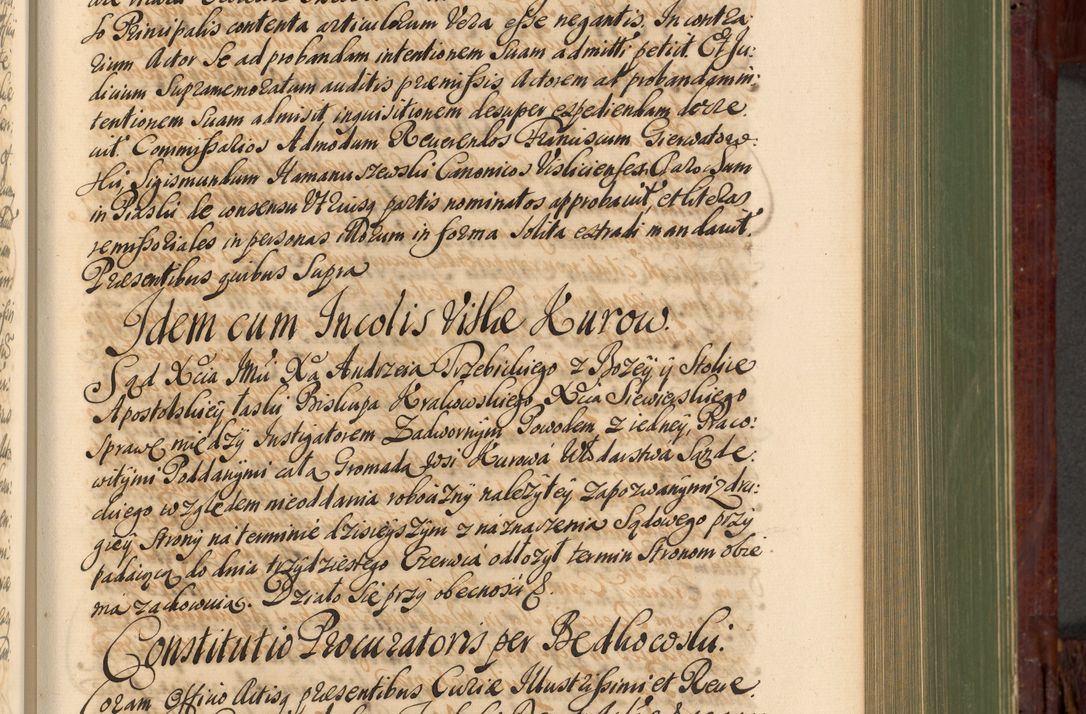 so Principalis contenta articulorum Vera esse negantis. In contra
rium Actor Se ad probandam intentionem Suam admitti petiit Et Ju:
dicium Supramemoratum auditis præmissis Actorem ad probandam in:
tentionem Suam admisit inquisitionem desuper expediendam decre
uit. Commissarios Admodum Reuerendos Franciscum
Sigismundum Hamanuszewski Canonicos Vislicienses
in Piaski de consensu Vtriusq partis nominatos approbauit, et literas
remissoriales in personas illorum in forma solita extradi mandauit.
Præsentibus quibus Supra
Idem cum Incolis Villæ Kurow.
Sąd Xcia JMci Xa Andrzeia Trzebickiego z Bozey y Stolice
Apostolskiey łaski Biskupa Krakowskiego Xcia Siewierskiego
sprawę między Instigatorem Zadwornym Powodem z iedney, Praco:
witymi Poddanymi całą Gromadą wsi Kurowá Włodarstwá Sąde:
ckiego względem nieoddania robocizny należytey zapozwanymi z dru:
giey Strony na terminie dzisieyszym z náznaczenia Sądowego przy
padaiącą do dnia trzydziestego Czerwcá odłozył termin Stronom obie
má zachowuiąc. Działo Się przy obecnosci &.
Constitutio Procuratoris per Bedkocoski.
Coram Officio Actisq præsentibus Curiæ Illustrissimi et Reue